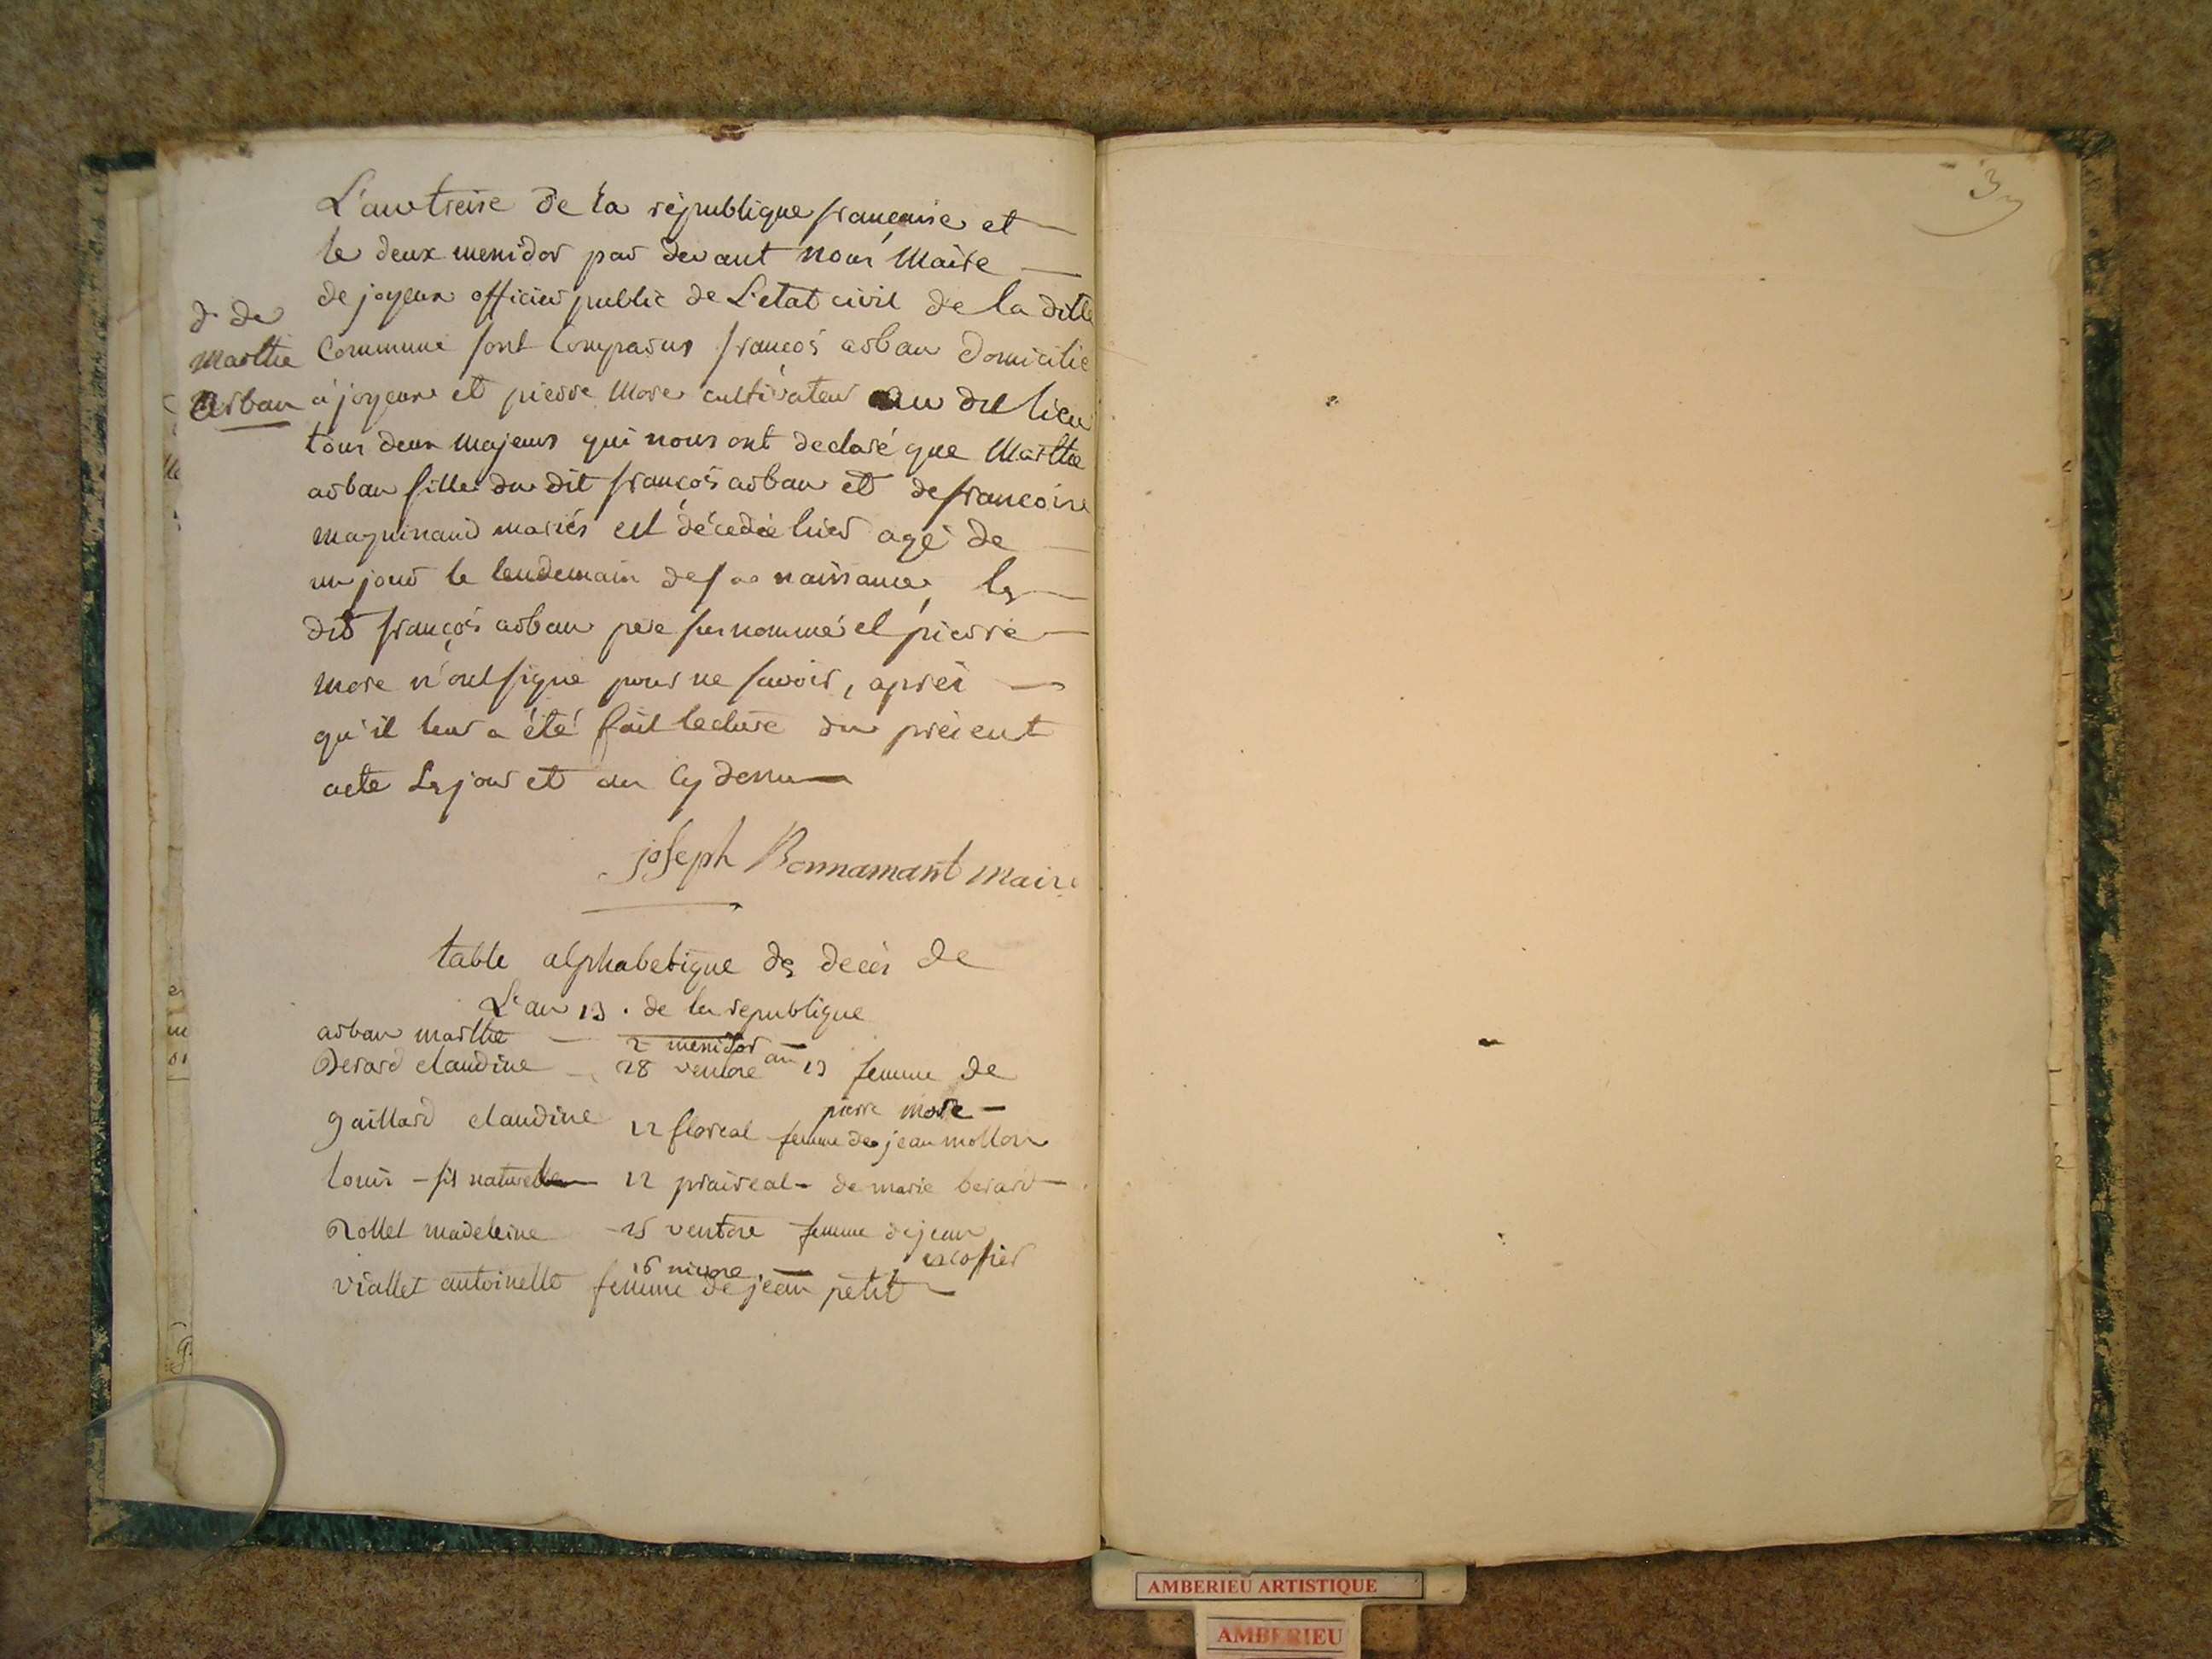 L'an treise de la république françaaise et
le deux messidor par devant nous Maire
de joyeux officier public de L'etat civil de la ditte
Commune sont Comparus françois arban domicilié
à joyeux et pierre More cultivateur au dit lieu
tous deux Majeurs qui nous ont declaré que Marthe
arban fille du dit françois arban et de francoise
maguinand mariés est décedée hier agé de
un jour le lendemain de sa naissance, le
dit françois arban pere susnommé et pierre
more n'ont signé pour ne savoir, après
qu'il leur a été fait lecture du présent
acte Le jour et an Cy dessus
d. de
Marthe
Arban
joseph Bonnamant Maire
table alphabetique des deces de
L'an 13. de la republique
arban marthe 2 messidor
Berard claudine 28 ventose an 13 femme de
pierre more
gaillard claudine 12 floreal femme de jean mollon
louis - fils naturel 12 praireal - de marie berard
Rollet madeleine 15 ventose femme de jean
escofier
16 nivose
viallet antoinette femme de jean petit
3
AMBERIEU ARTISTIQUE
AMBERIEU